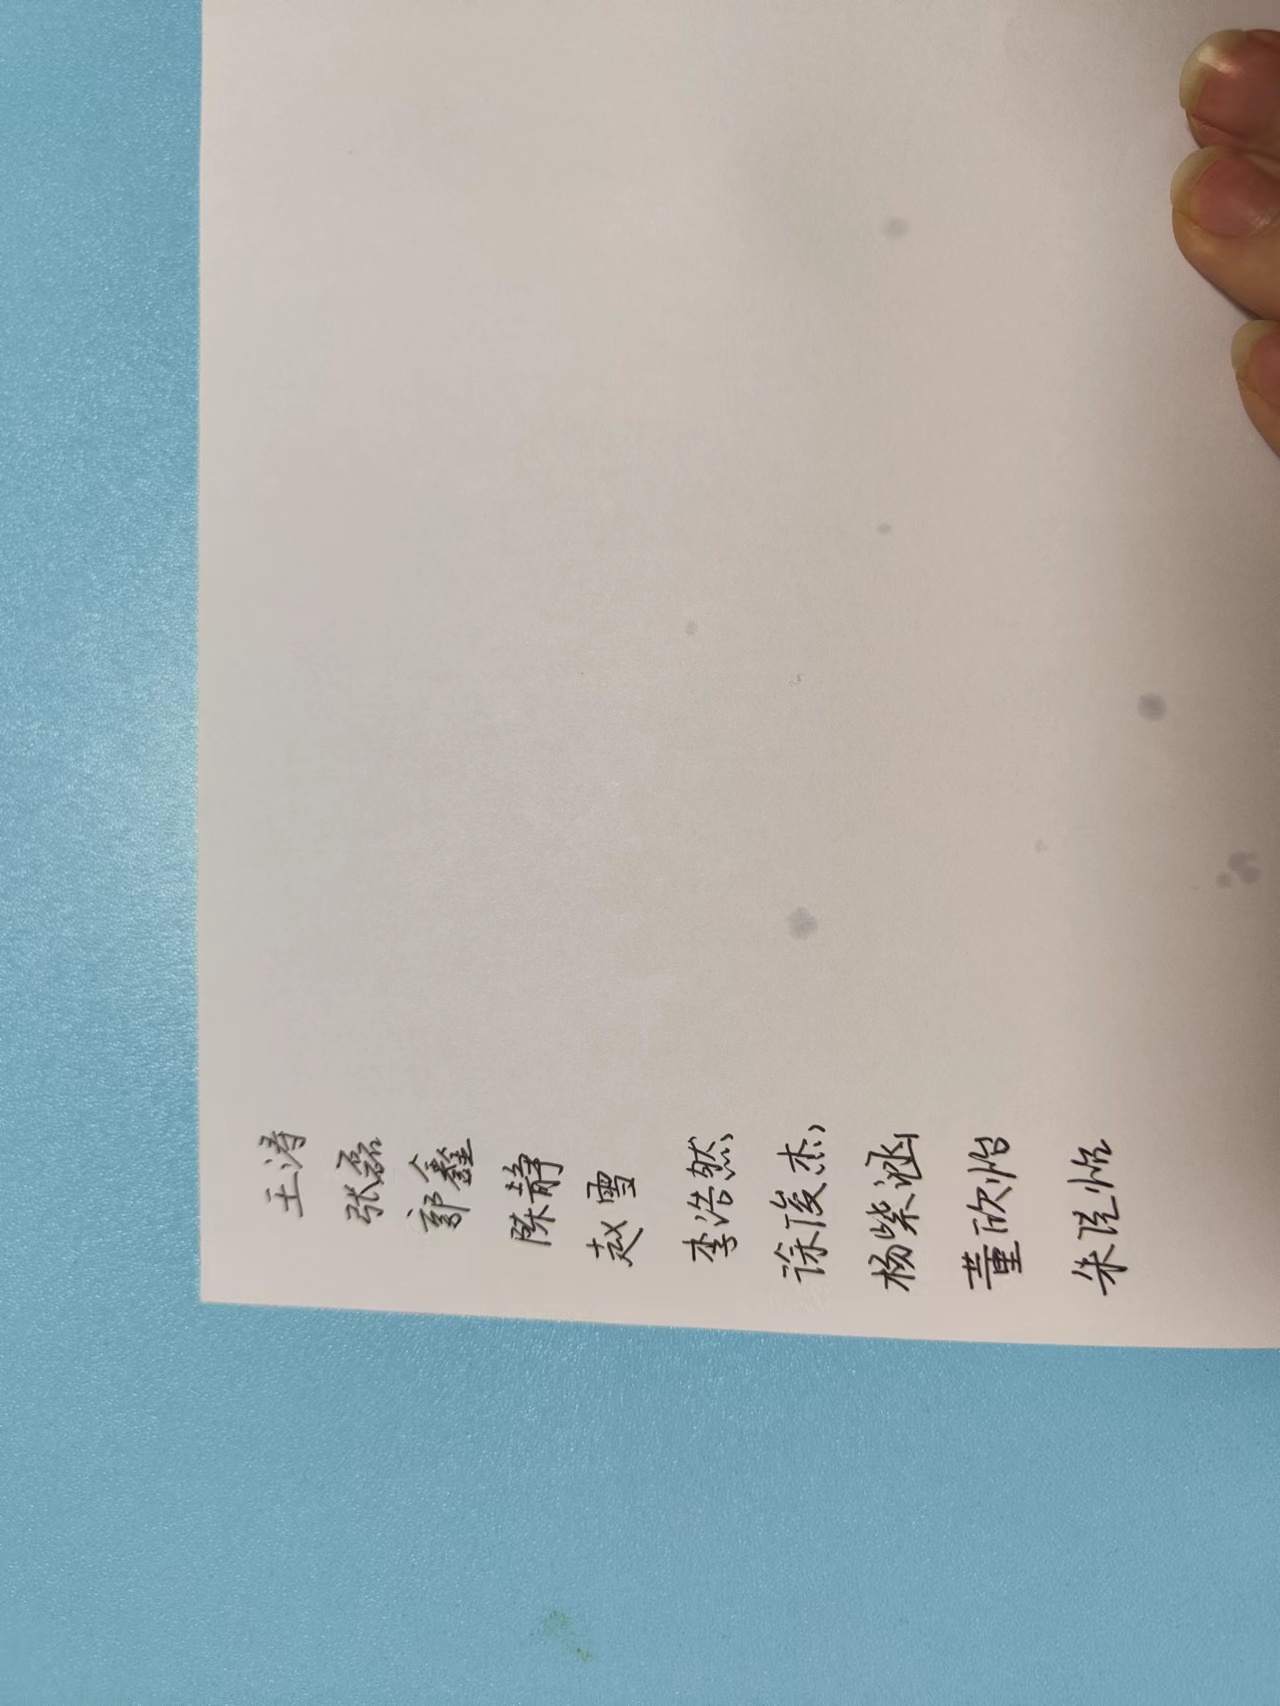 王涛
张磊
郭鑫
陈静
赵雪
李浩然
徐俊杰
杨紫涵
董欣怡
朱怡